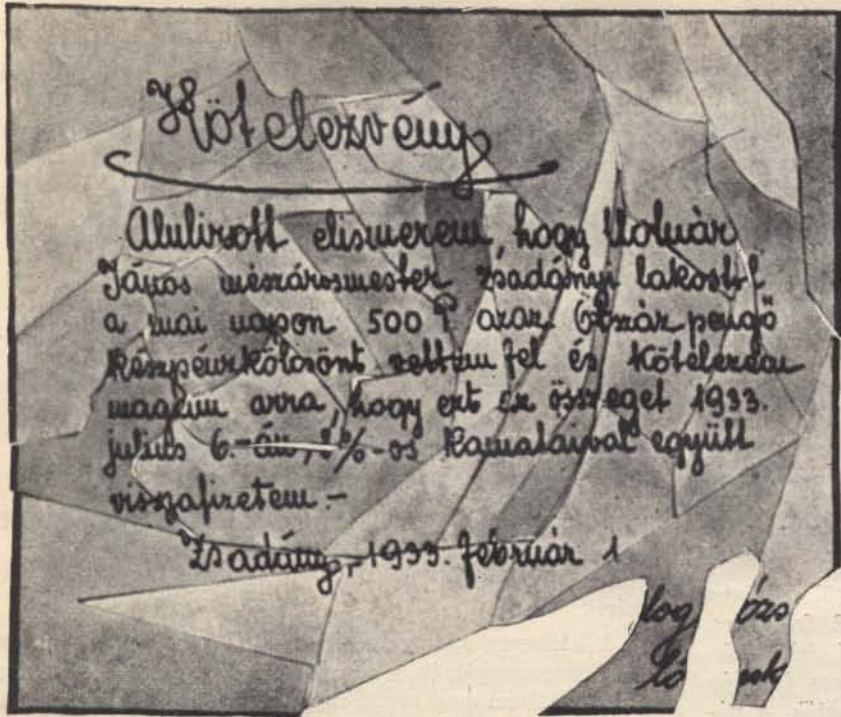 Kötelezvény
Alulirott elismerem, hogy Molnár
János mészárosmester zsadányi lakostól
a mai napon 500 P azaz Ötszáz pengő
készpénzkölcsönt vettem fel és kötelezem
magam arra, hogy ezt az összeget 1933.
julius 6.-án, %-os kamataival együtt
visszafizetem.-
Zsadány, 1933. február 1